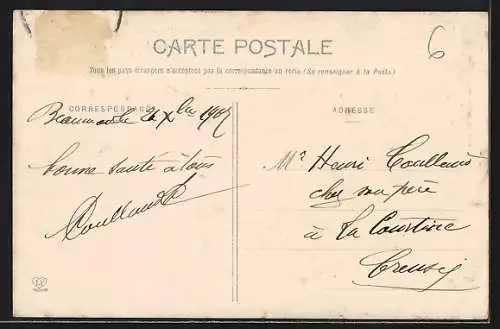 6
CARTE POSTALE
Tous les pays étrangers n'acceptent pas la correspondance au recto (Se renseigner à la Poste)
CORRESPONDANCE
ADRESSE
Xbre 1905
bonne santé à tous
Coulland
Mr Henri Coulland
chez son père
à La Courtine
Creuse